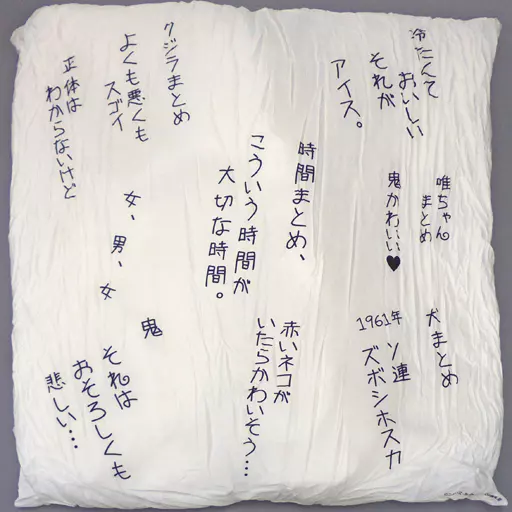 冷たくて
おいしい
それが
アイス。
クジラまとめ
よくも悪くも
スゴイ
正体は
わからないけど
唯ちゃん
まとめ
鬼かわいい♥
時間まとめ、
こういう時間が
大切な時間。
女、男、女
鬼
それは
おそろしくも
悲しい…
犬まとめ
1961年 ソ連
ズボシホスカ
赤いネコが
いたらかわいそう…